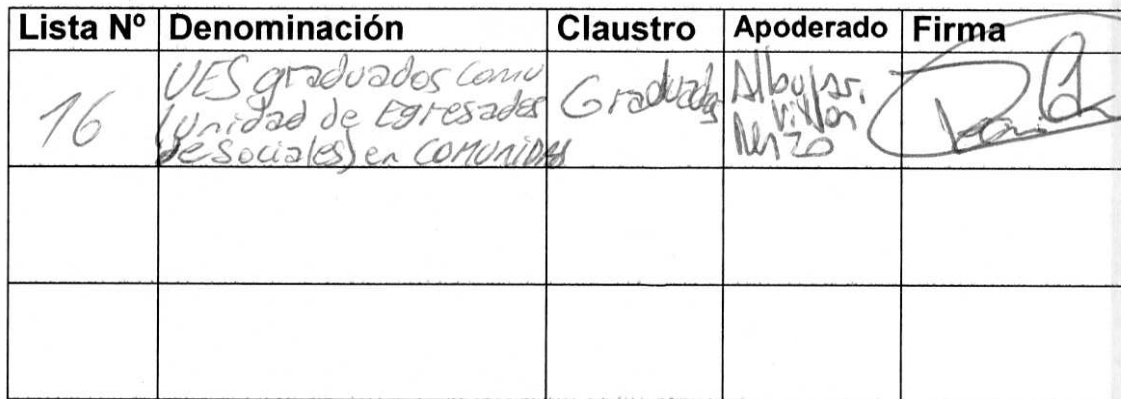 Lista Nº Denominación Claustro Apoderado Firma
16
UES graduados (comu
(Unidad de Egresados
de Sociales) en COMUNIDAD
Graduados